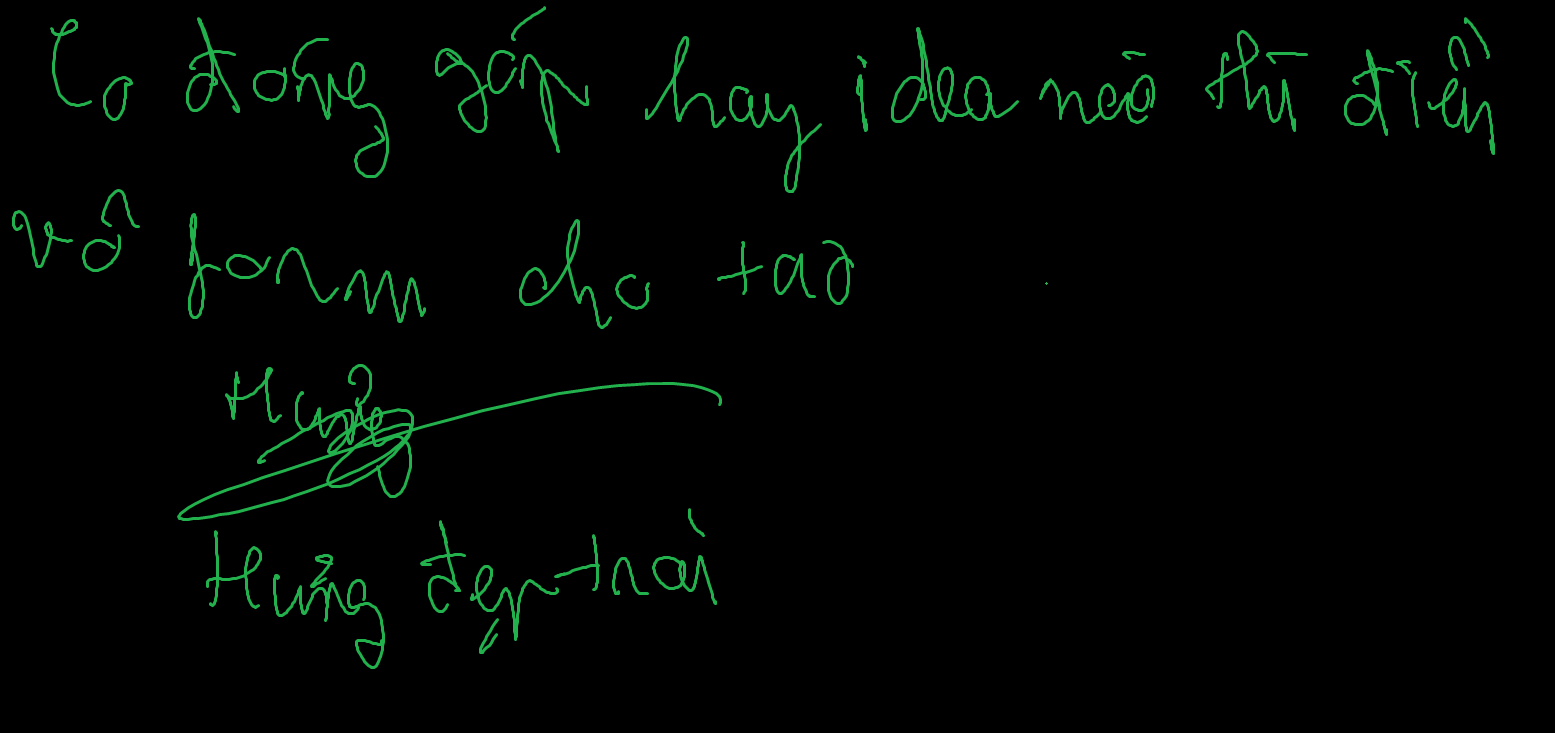 Co đóng góp hay idea nào thì điền
vô form cho tao
Hưng đẹp trai